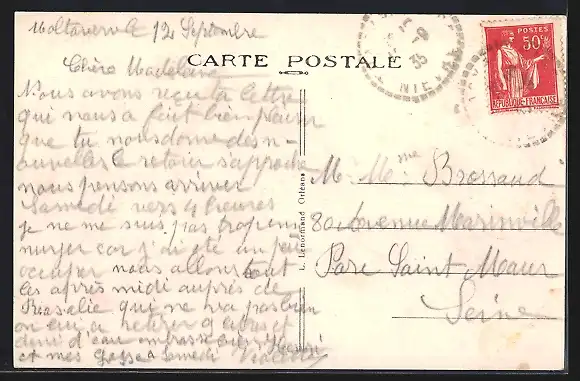 Moltavern le 12 Septembre
CARTE POSTALE
POSTES
50c
REPUBLIQUE FRANÇAISE
35
NIE
Chère Madeleine
Nous avons reçu ta lettre
qui nous a fait bien plaisir
que tu nous donne des n-
ouvelles le retour s'approche
nous pensons arriver
Samedi vers 4 heures
je ne me suis pas trop en
nuyer car j'ai été un peu
occuper nous allons tout
les après midi auprès de
Rosalie qui ne va pas bien
on lui a retirer 9 litres et
demi d'eau
et mes Gosse a Samedi
L. Lenormand Orléans
M Mme Brossaud
80 Avenue Marinville
Parc Saint Maur
Seine